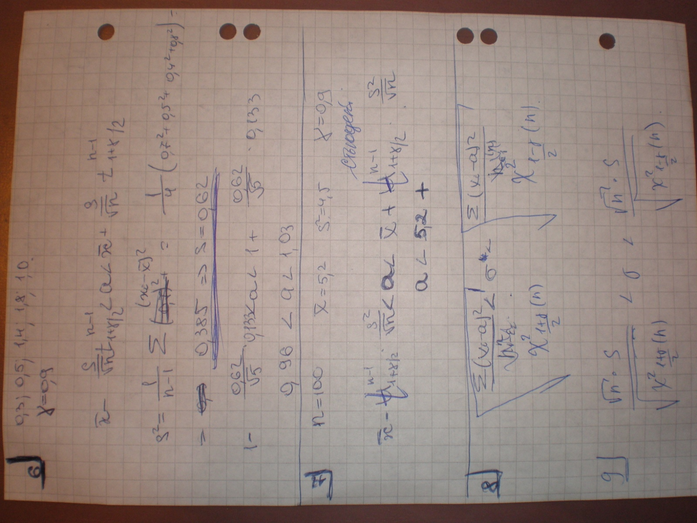 6
0,3; 0,5; 1,4; 1,8; 1,0.
γ=0,9
x̄ - S/√n t^{n-1}_{1+γ/2} < a < x̄ + S/√n t^{n-1}_{1+γ/2}
S² = 1/(n-1) Σ (x_i-x̄)² = 1/4 (0,7²+0,5²+0,4²+0,8²) =
= 0,385 => S = 0,62
1 - 0,62/√5 · 0,133 < a < 1 + 0,62/√5 · 0,133
0,96 < a < 1,03
7
n=100 x̄=5,2 S=4,5 γ=0,9
x̄ - t^{n-1}_{1+γ/2} · S²/√n < a < x̄ + t^{n-1}_{1+γ/2} · S²/√n
a < 5,2 +
8
√(Σ(x_i-a)²/χ²_{(1+γ)/2}(n)) < σ < √(Σ(x_i-a)²/χ²_{(1-γ)/2}(n))
9
√n · S / √(χ²_{(1+γ)/2}(n)) < σ < √n · S / √(χ²_{(1-γ)/2}(n))